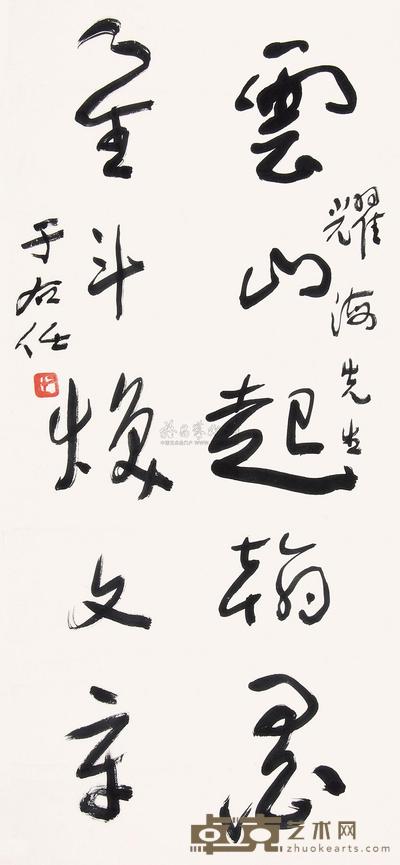 雲山起翰墨
耀海先生
星斗煥文章
于右任
卓克艺术网
zhuokearts.com